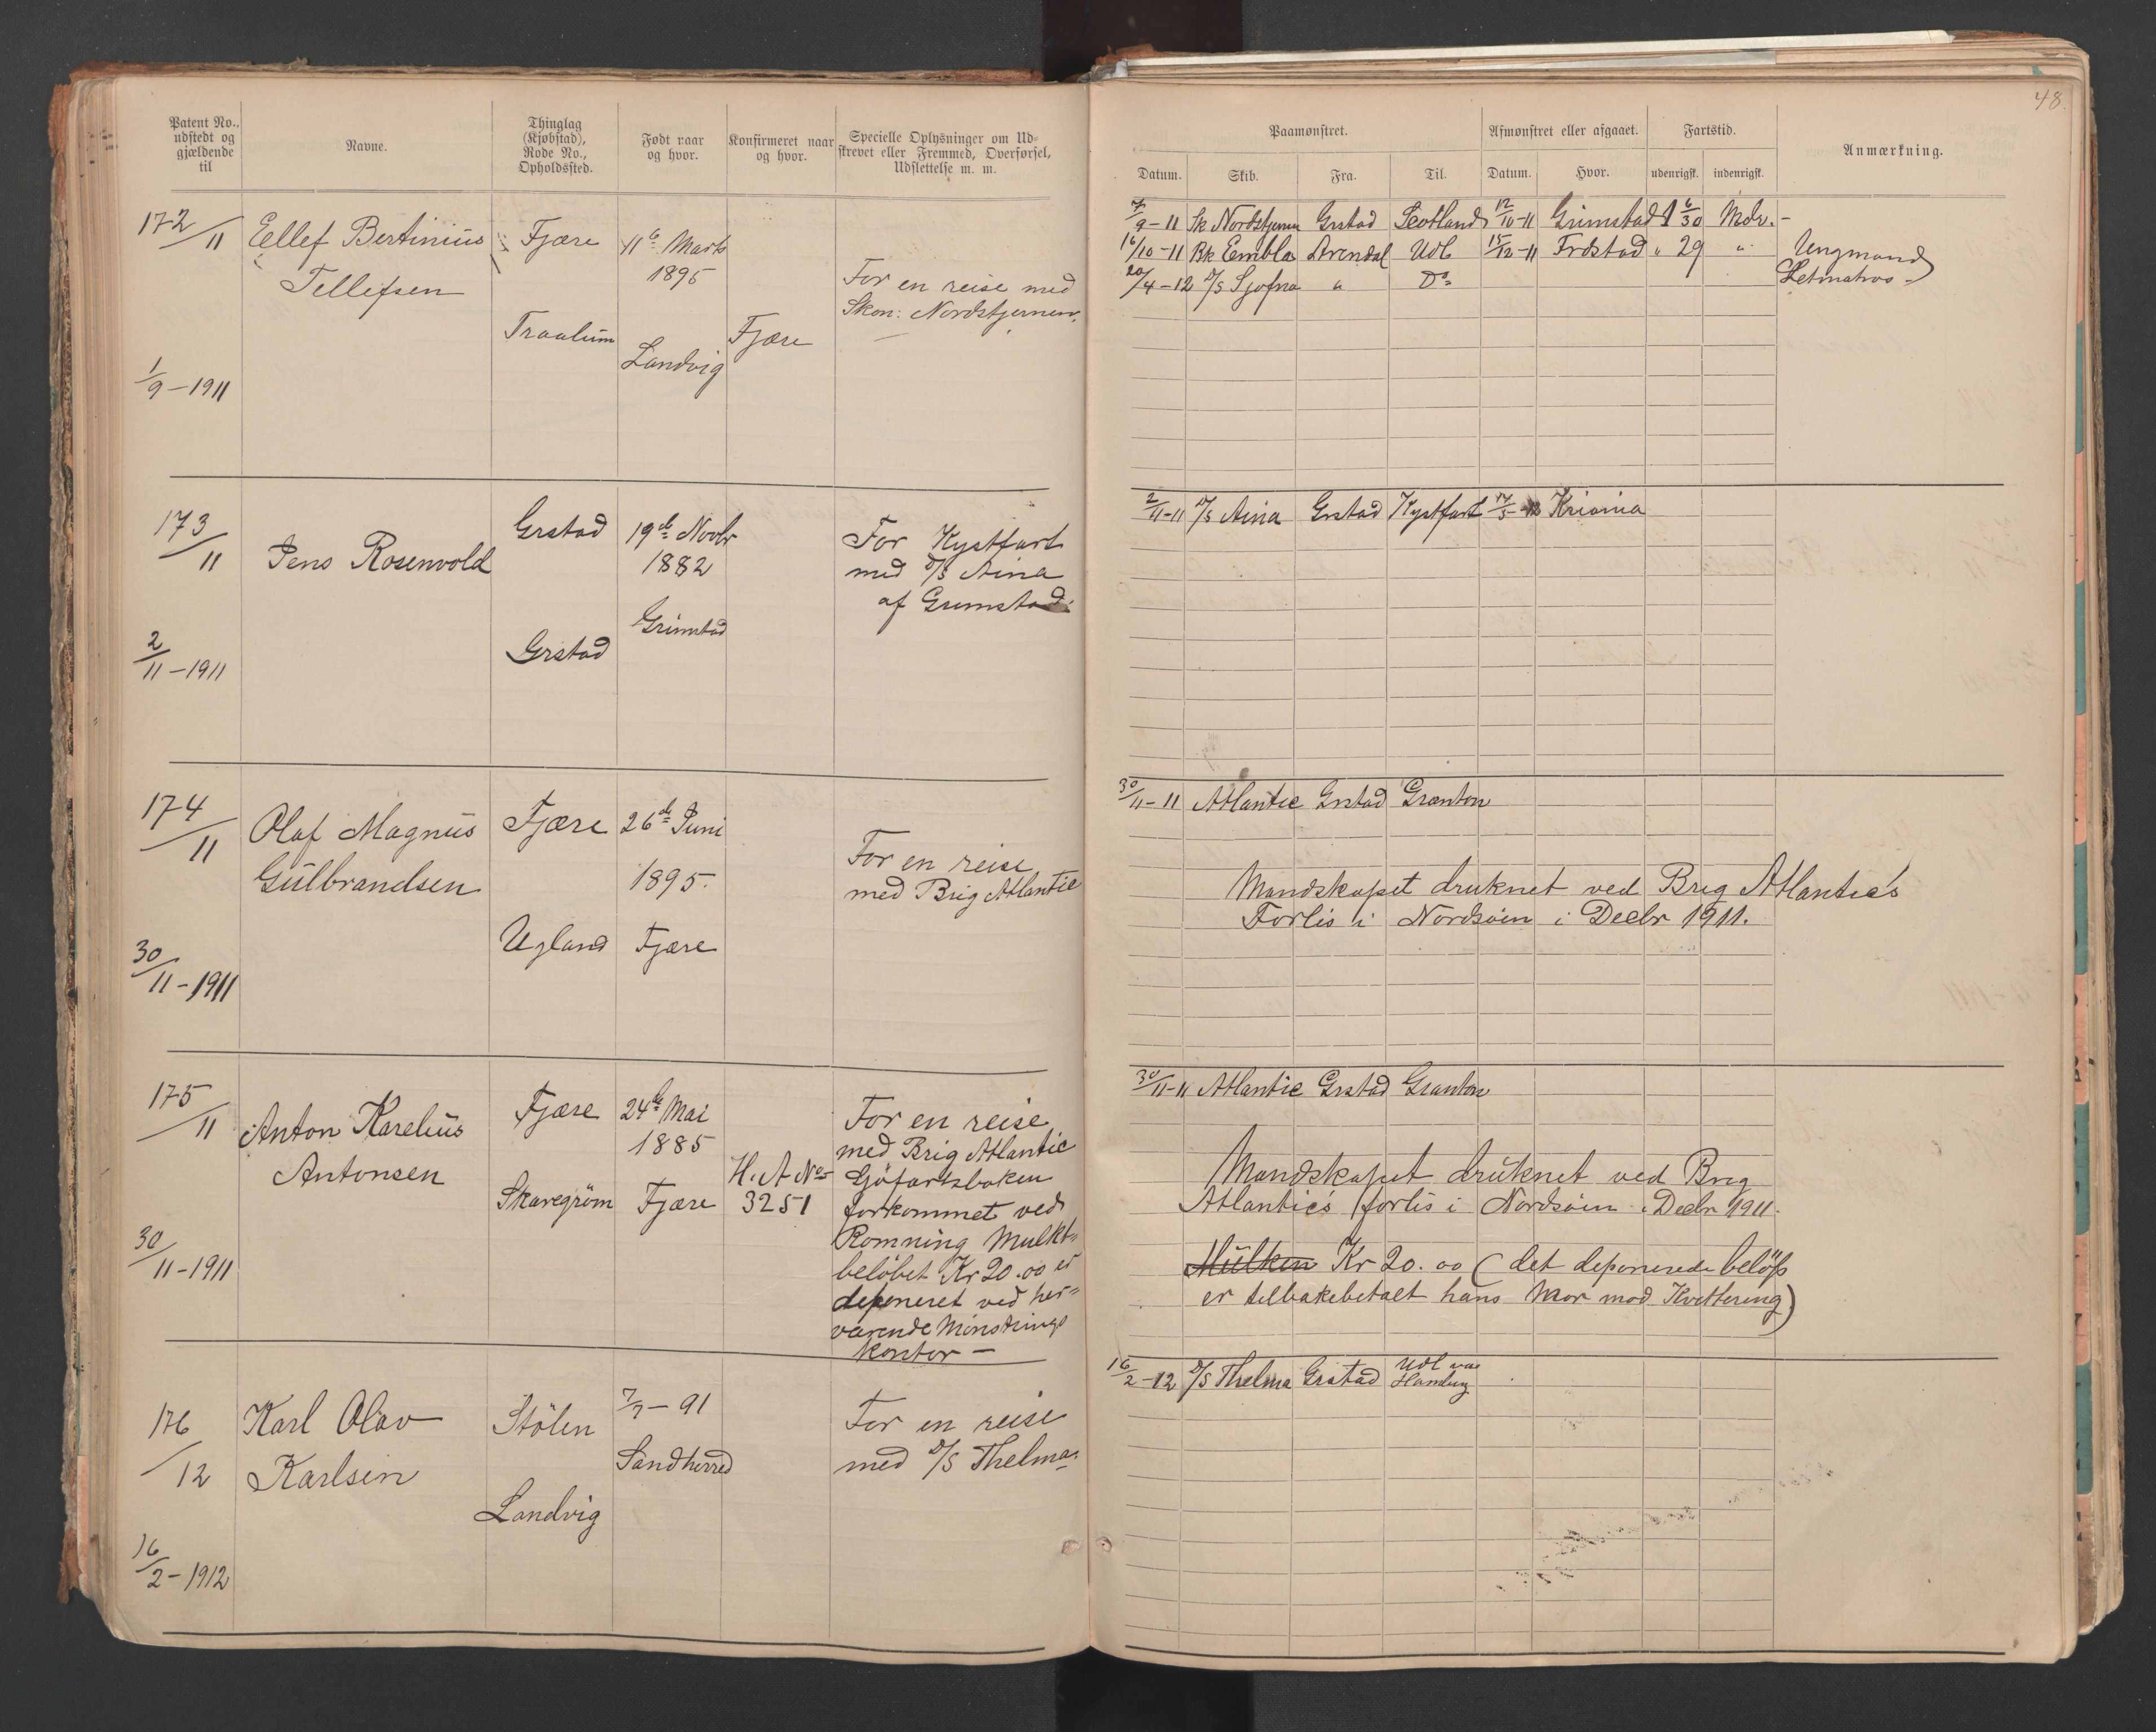 48.
Patent No.,
udstedt og
gjældende
til
Navne.
Thinglag
(Kjøbstad),
Rode No.,
Opholdssted.
Født naar
og hvor.
Konfirmeret naar
og hvor.
Specielle Oplysninger om Ud-
skrevet eller Fremmed, Overførsel,
Udslettelse m. m.
Paamønstret.
Afmønstret eller afgaaet.
Fartstid.
Anmærkning.
Datum.
Skib.
Fra.
Til.
Datum.
Hvor.
udenrigsk.
indenrigsk.
172/11
Eellef Bertinius
Tellefsen
Fjære
Traalum
11te Marts
1895
Landvig
Fjære
For en reise med
Skon: Nordstjernen.
1/9-1911
7/9-11 Sk Nordstjernen Grstad Scotland 12/10-11 Grimstad 1 6/30 Mdr. -
16/10-11 Bk Eembla Arendal Udl 15/12-11 Frdstad " 29 " Ungmand
20/4-12 D/S Sjofna " Do Letmatros -
173/11
Jens Rosenvold
Grstad
Grstad
19de Novbr
1882
Grimstad
For Kystfart
med D/S Aina
af Grimstad.
2/11-1911
2/11-11 D/S Aina Grstad Kystfart 17/5-12 Kriania
174/11
Olaf Magnus
Gulbrandsen
Fjære
Ugland
26de Juni
1895.
Fjære
For en reise
med Brig Atlantic
30/11-1911
30/11-11 Atlantic Grstad Granton
Mandskapet druknet ved Brig Atlantic's
Forlis i Nordsøen i Decbr 1911.
175/11
Anton Karelius
Antonsen
Fjære
Skaregrøm
24de Mai
1885
Fjære
H. A No
3251
For en reise
med Brig Atlantic
Sjøfartsboken
forkommet ved
Rømning Mulkt-
beløbet Kr 20.00 er
deponeret ved her-
værende Mønstrings
kontor -
30/11-1911
30/11-11 Atlantic Grstad Granton
Mandskapet druknet ved Brig
Atlantic's forlis i Nordsøen i Decbr 1911.
Mulkten Kr 20.00 (det deponerede beløp
er tilbakebetalt hans Mor mod Kvittering)
176/12
Karl Olav
Karlsen
Stølen
Landvig
7/7-91
Sandherred
For en reise
med D/S Thelma.
16/2-1912
16/2-12 D/S Thelma Grstad Udl via
Hamburg